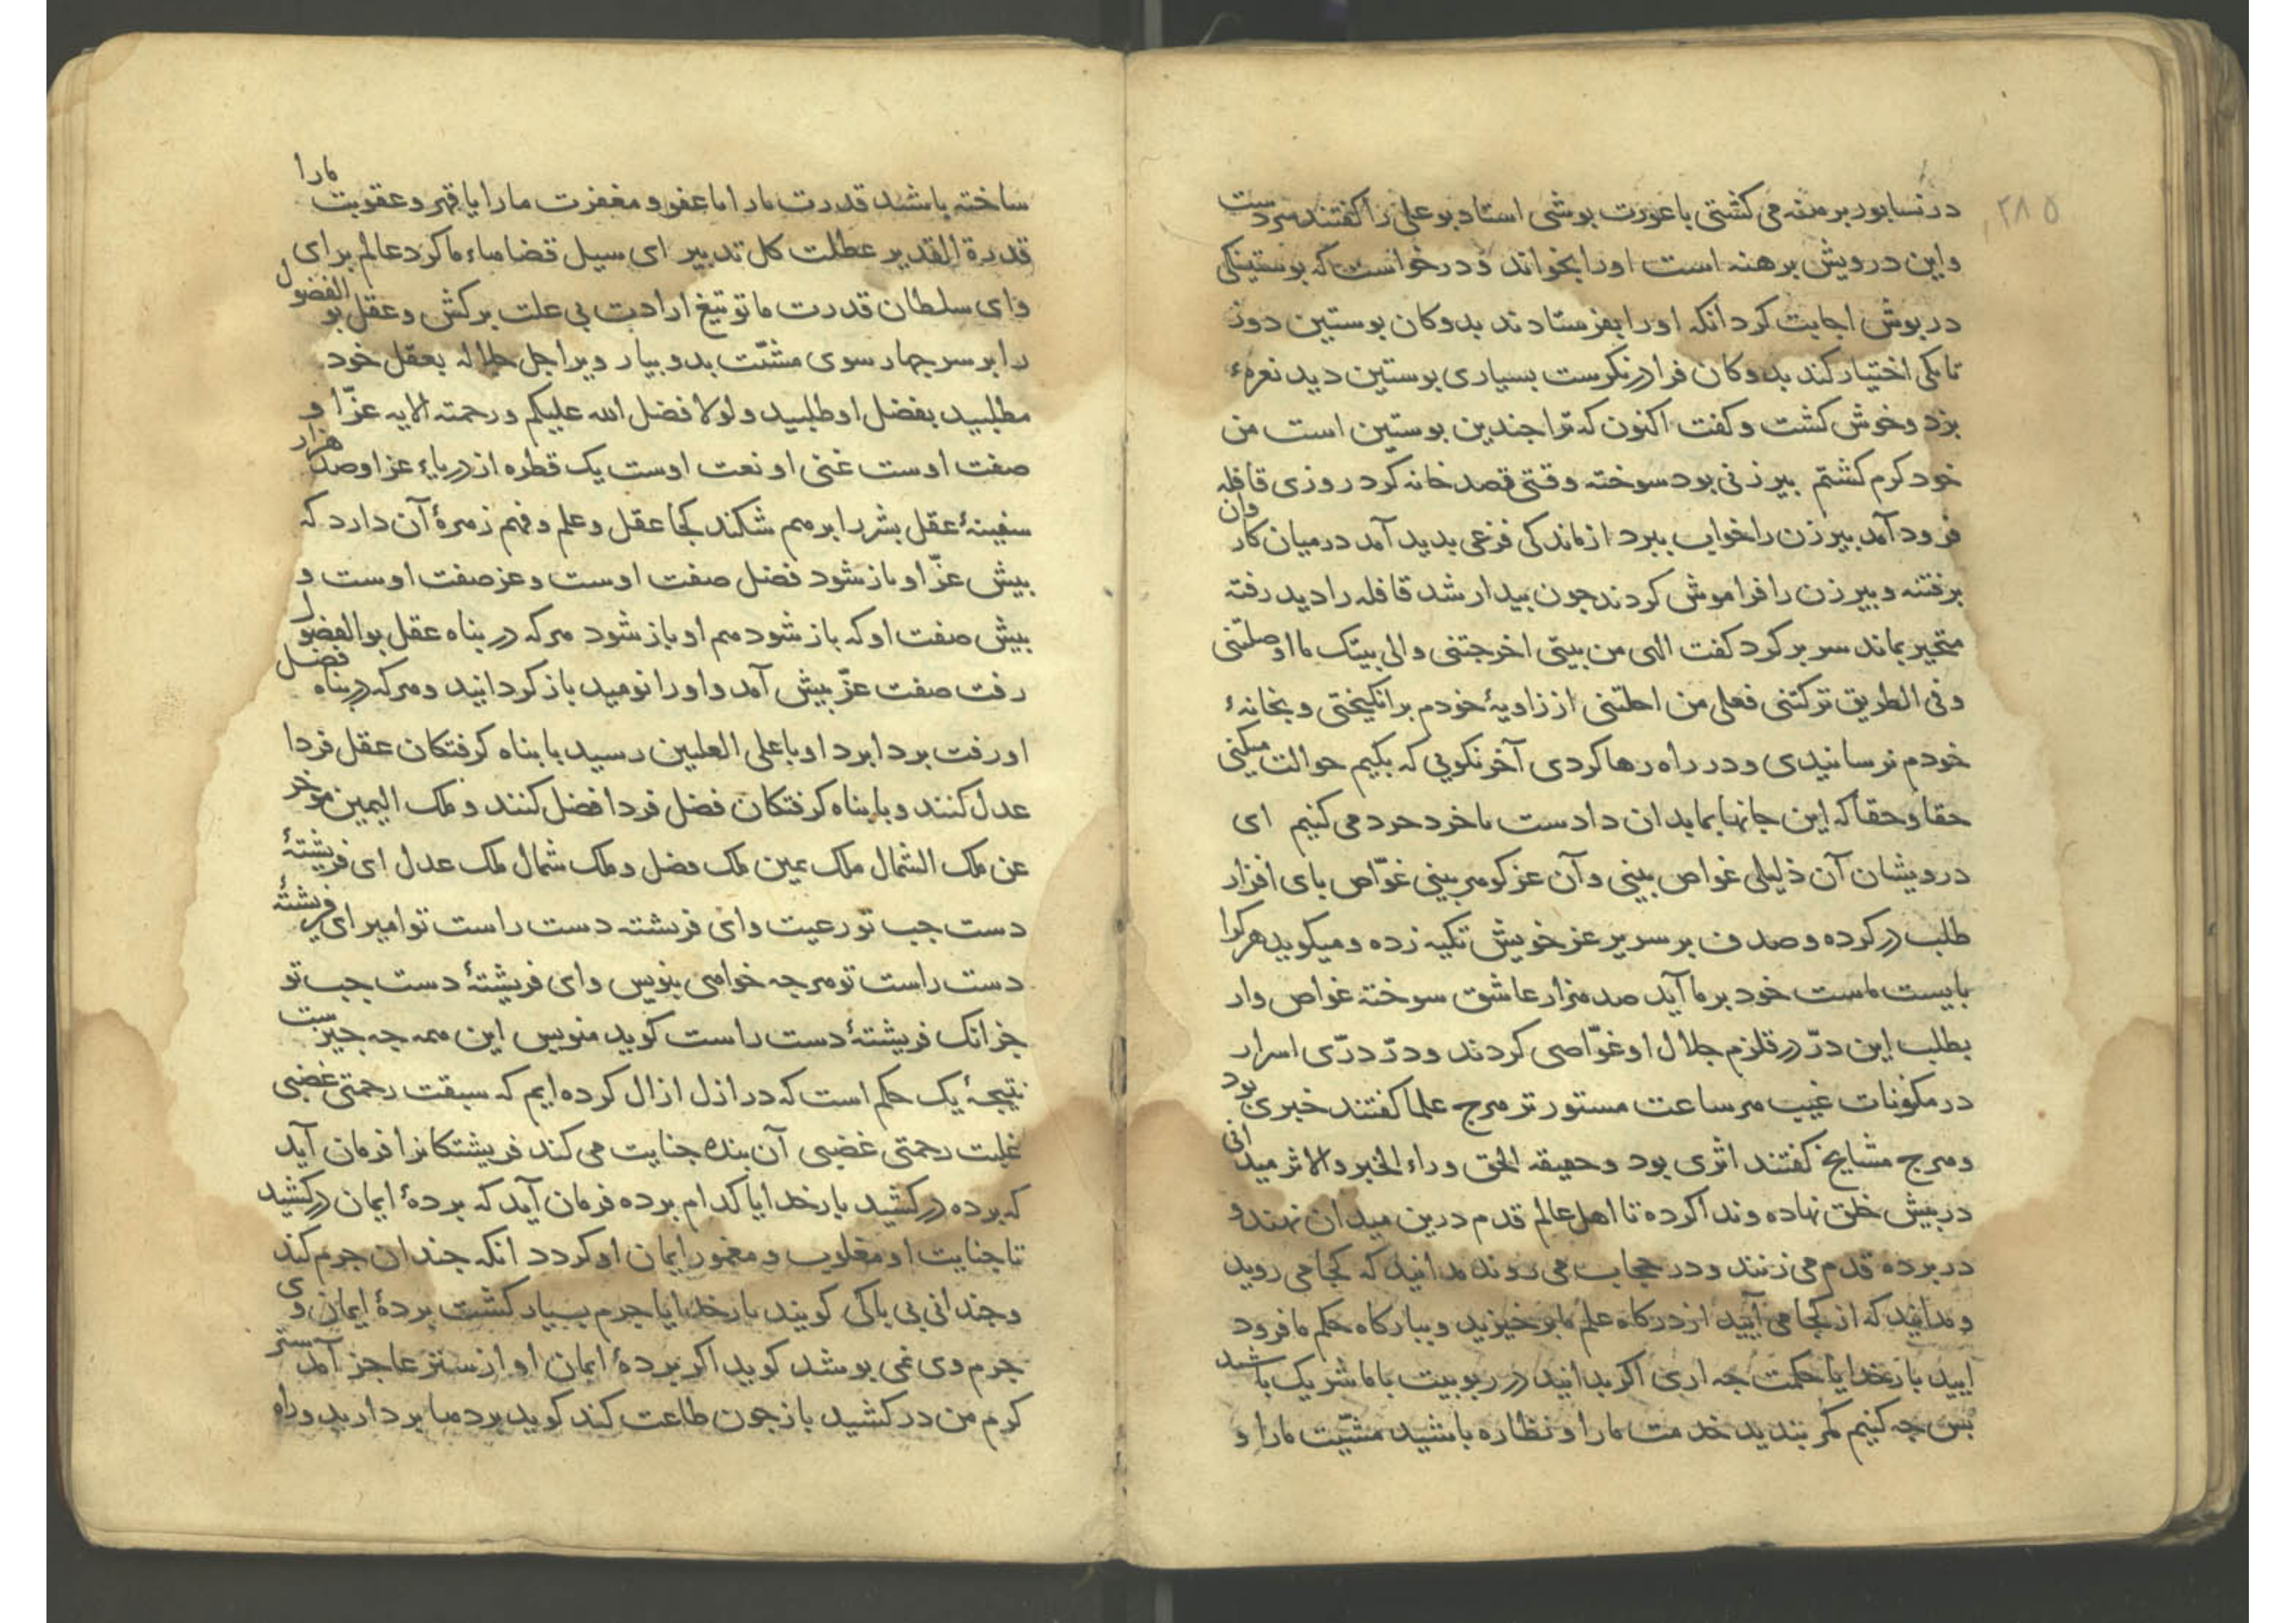 ۲۸۵
در نسابور برهنه می کشتی با عورت بوشی استاد بو علی را کفتند سردست
واین درویش برهنه است اورا بخواند و درخواست که بوستینکی
در بوش اجابت کرد آنکه اورا بفرستادند بدوکان بوستین دوز
تا یکی اختیار کند بدوکان فرا درنکرست بسیاری بوستین دید نعرهٔ
بزد وخوش کشت و کفت اکنون که ترا جندین بوستین است من
خود کرم کشتم بیر زنی بود سوخته وقتی قصد خانه کرد روزی قافله
فرود آمد بیر زن را خواب ببرد از ماندکی فزعی بدید آمد در میان کاروان
برفتند و بیر زن را فراموش کردند جون بیدار شد قافله را دید رفته
متحیر بماند سر بر کرد کفت الهی من بیتی اخرجتنی والی بیتک ما اوصلتنی
وفی الطریق ترکتنی فعلی من احلتنی از زاویهٔ خودم برانکیختی و بخانهٔ
خودم نرسانیدی ودر راه رها کردی آخر نکویی که بکیم حوالت میکنی
حقا وحقا که این جانها بما بدان دادست تا خرد خرد می کنیم ای
درویشان آن ذلیلی غواص بینی وآن عز کوهر بینی غوّاص بای افزار
طلب درکرده وصدف بر سریر عز خویش تکیه زده ومیکوید هرکرا
بایست ماست خود بر ما آید صد هزار عاشق سوخته غواص وار
بطلب این درّ در قلزم جلال او غوّاصی کردند ودرّ درّی اسرار
در مکونات غیب هر ساعت مستور تر هرج علما کفتند خبری بود
وهرج مشایخ کفتند اثری بود وحقیقه الحق وراء الخبر والاثر میدانی
در بیش خلق نهاده وندا کرده تا اهل عالم قدم درین میدان نهند و
در برده قدم می زنند ودر حجاب می روند مدانید که کجا می روید
ومدانید که از کجا می آیید از درکاه علم ما بر خیزید وببارکاه حکم ما فرود
آیید بار خدایا حکمت جه آری اکر بدانید در ربوبیت با ما شریک باشید
بس جه کنیم کمر بندید خدمت مارا ونظاره باشید مشیّت مارا و
ساخته باشید قدرت مارا اما عفو و مغفرت مارا یا قهر وعقوبت مارا
قدرة القدیر عطلت کل تدبیر ای سیل قضا ماء ما کرد عالم برای
وای سلطان قدرت ما تو تیغ ارادت بی علت برکش وعقل بو الفضول
را بر سر جهار سوی مشیّت بدو بیار ویرا جل جلاله بعقل خود
مطلبید بفضل او طلبید ولولا فضل الله علیکم ورحمته الایه عزّ او
صفت اوست غنی او نعت اوست یک قطره از دریاء عز او صد هزار
سفینهٔ عقل بشر را بر هم شکند کجا عقل وعلم وفهم زهرهٔ آن دارد که
بیش عزّ او باز شود فضل صفت اوست وعز صفت اوست و
بیش صفت او که باز شود هم او باز شود هرکه در بناه عقل بوالفضول
رفت صفت عزّ بیش آمد و اورا نومید باز کردانید وهرکه در بناه فضل
او رفت بردا برد او با علی العلیین رسید با بناه کرفتکان عقل فردا
عدل کنند وبا بناه کرفتکان فضل فردا فضل کنند وملک الیمین موخر
عن ملک الشمال ملک یمین ملک فضل وملک شمال ملک عدل ای فریشتهٔ
دست جب تو رعیت وای فریشته دست راست تو امیر ای فریشتهٔ
دست راست تو هر جه خواهی بنویس وای فریشتهٔ دست جب تو
جز انک فریشتهٔ دست راست کوید منویس این همه جه جیزست
نتیجهٔ یک حکم است که در ازل ازال کرده ایم که سبقت رحمتی غضبی
غلبت رحمتی غضبی آن بنده جنایت می کند فریشتکانرا فرمان آید
که برده درکشید بار خدایا کدام برده فرمان آید که بردهٔ ایمان درکشید
تا جنایت او مغلوب و مغمور ایمان او کردد آنکه جندان جرم کند
وجندانی بی باکی کویند بار خدایا جرم بسیار کشت بردهٔ ایمان وی
جرم وی نمی بوشد کوید اکر بردهٔ ایمان او از ستر عاجز آمد ستر
کرم من درکشید باز جون طاعت کند کوید بردها بردارید وراه